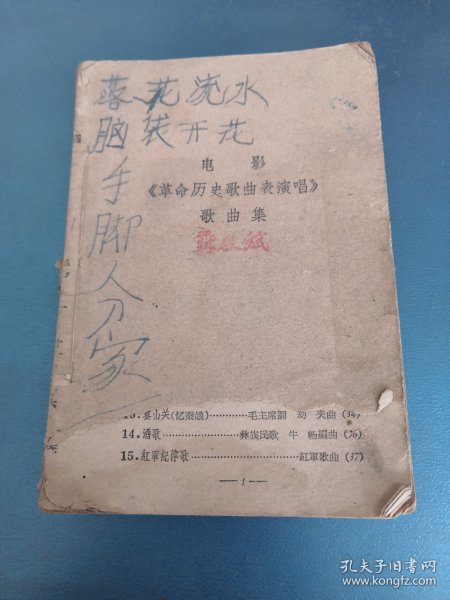 落花流水
脑袋开花
手脚人分家
电影
《革命历史歌曲表演唱》
歌曲集
13．娄山关(忆秦娥)…………毛主席词 劫夫曲 (34)
14．酒歌…………彝族民歌 牛畅编曲 (36)
15．紅軍纪律歌…………紅軍歌曲 (37)
—1—
孔夫子旧书网
www.kongfz.com